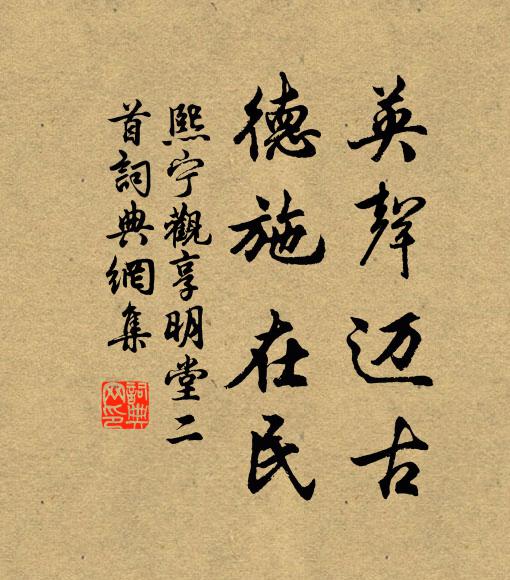 英聲迈古
德施在民
熙宁觀享明堂二
首詞典網集
詞典
网印